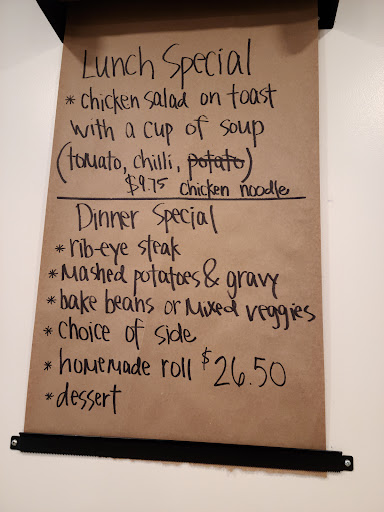 Lunch Special
* chicken salad on toast
with a cup of soup
(tomato, chilli, potato)
$9.75 chicken noodle
Dinner Special
* rib-eye steak
* Mashed potatoes & gravy
* bake beans or Mixed veggies
* choice of side
* homemade roll $26.50
* dessert